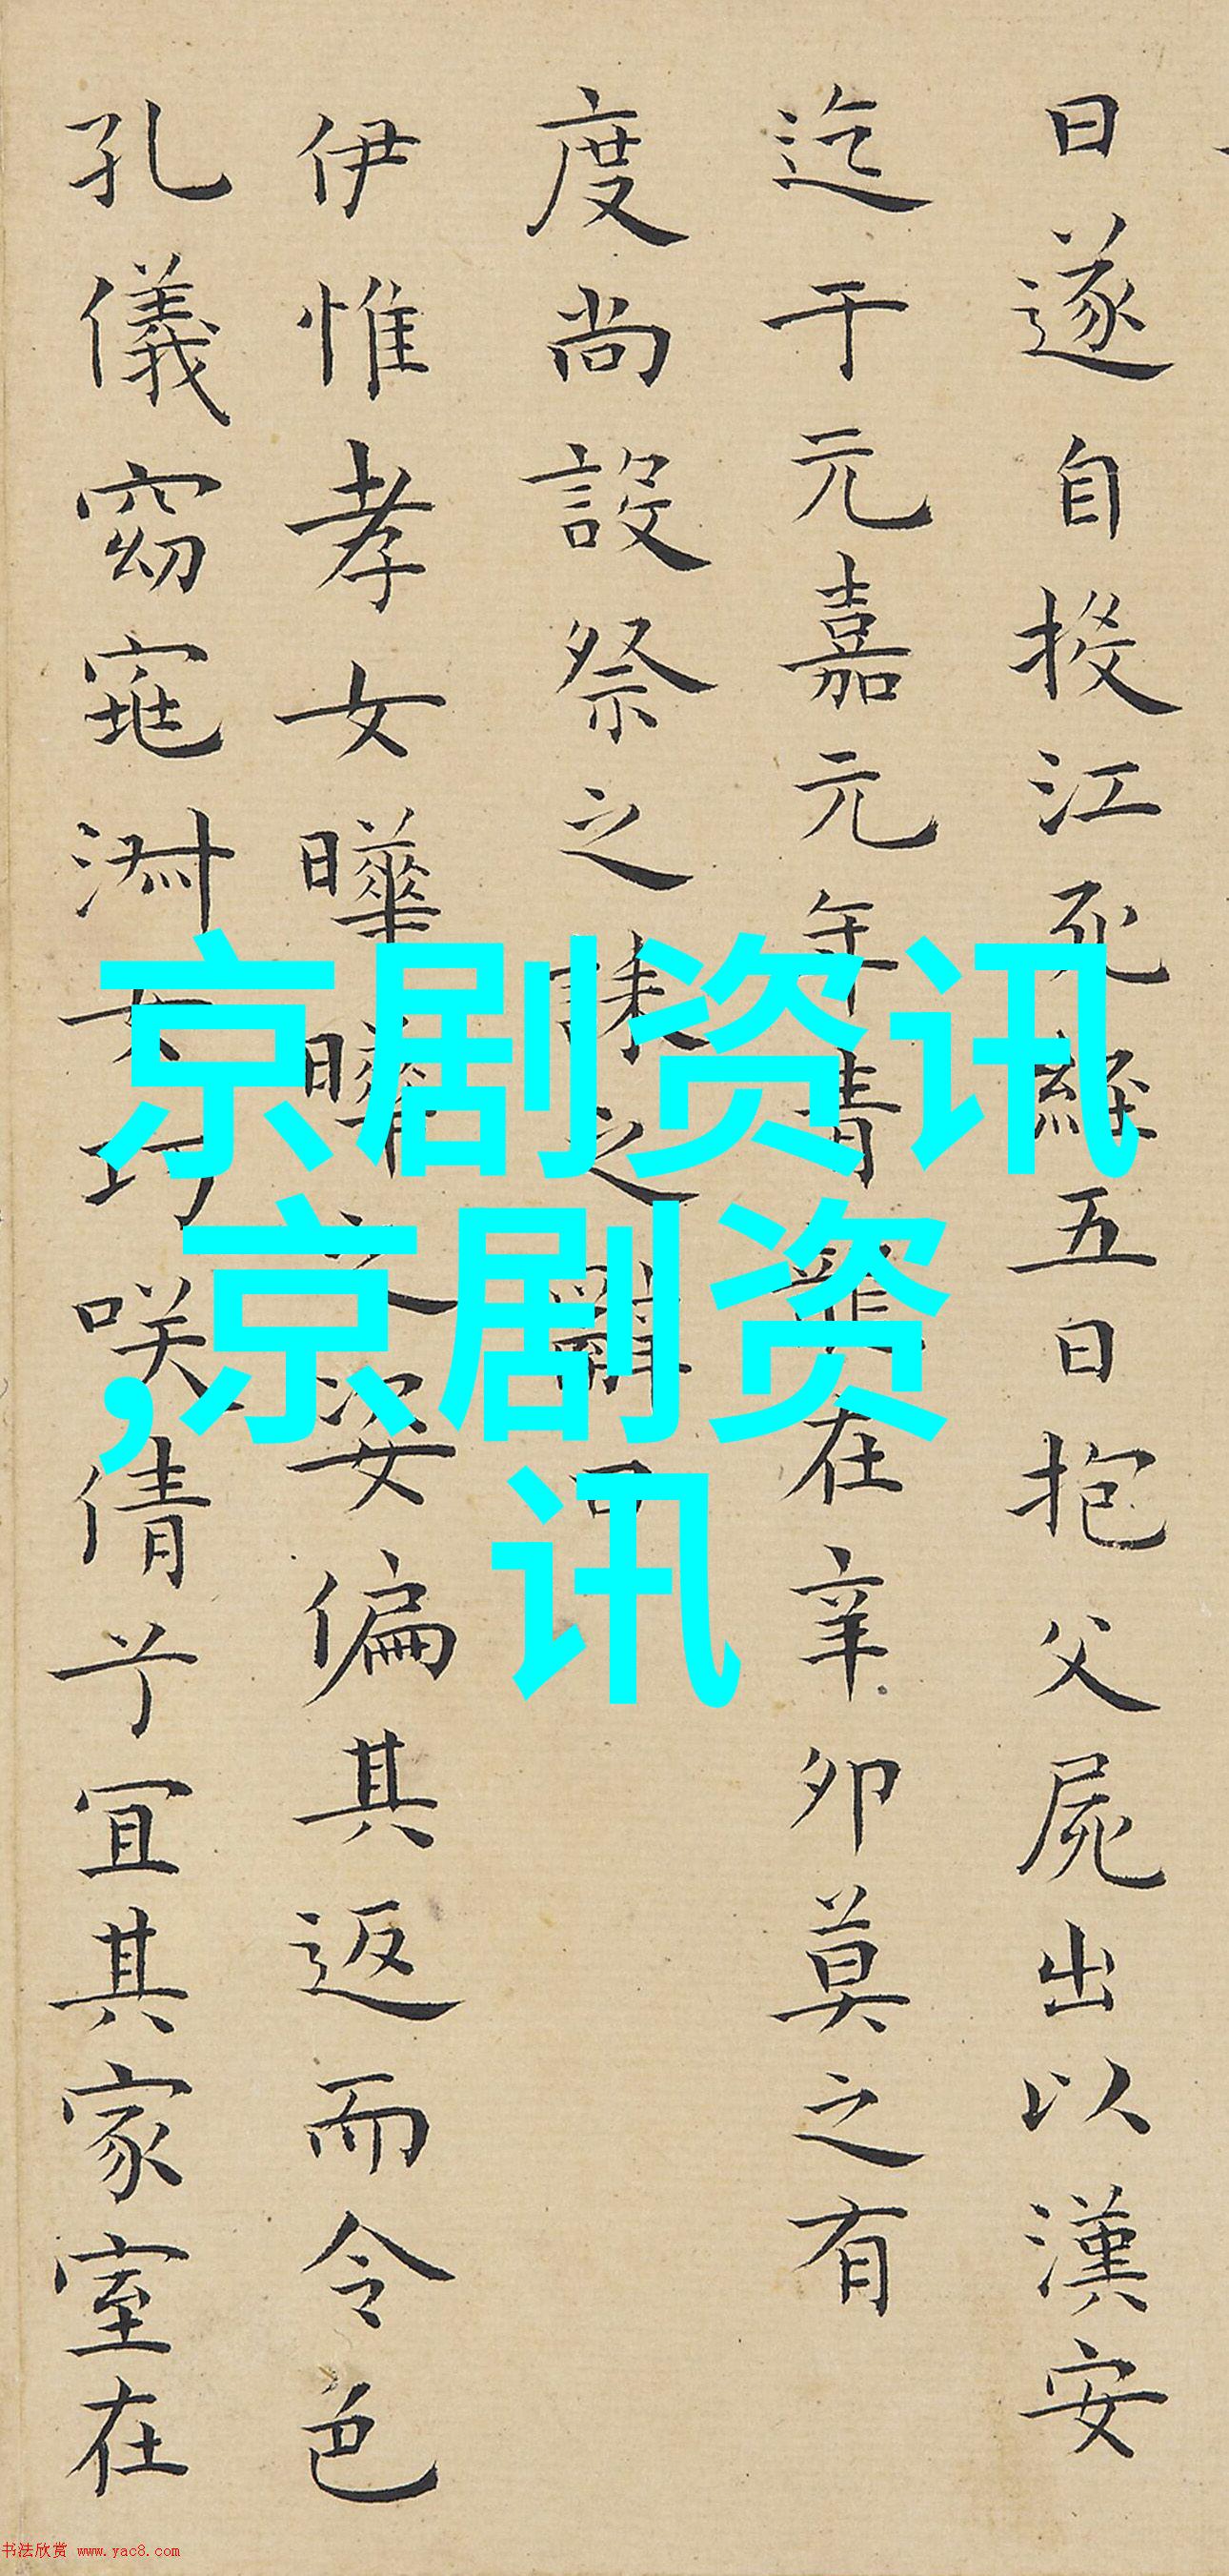 日遂自投江死經五日抱父屍出以漢安
迄于元嘉元年青龍在辛卯莫之有
度尚設祭之誄之辭曰
伊惟孝女曄曄之姿偏其返而令色
孔儀窈窕淑女巧咲倩兮宜其家室在
京剧资讯
,京剧资
讯
书法欣赏 www.yac8.com